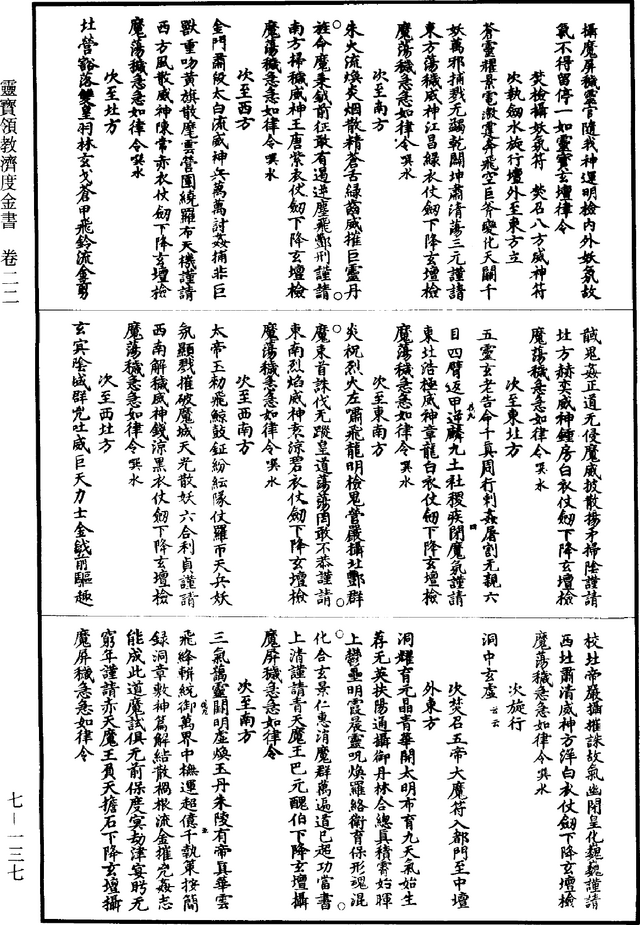 靈寶領教濟度金書　卷二二
七—一三七
攝魔屏穢靈官隨我神運明檢內外妖氛故
氣不得留停一如靈寶玄壇律令
焚檢攝妖氣符　焚召八方威神符
次執劒水旋行壇外至東方立
蒼靈耀景電激霆奔飛空巨斧變化天關千
妖萬邪捕戮无蹋乾闢坤肅清蕩三元謹請
東方蕩穢威神江昌綠衣仗劒下降玄壇檢
魔蕩穢急急如律令噀水
次至南方
朱火流煥炎烟散精蒼舌綠齒威摧巨靈丹
旌命魔秉鉞前征敢有過逆塵飛酆刑謹請
南方掃穢威神王唐紫衣仗劒下降玄壇檢
魔蕩穢急急如律令噀水
次至西方
金門肅殺太白流威神兵萬萬討姦捕非巨
獸重吻黃旗散魔雲營圍繞羅布天機謹請
西方風散威神陳常赤衣仗劒下降玄壇檢
魔蕩穢急急如律令噀水
次至北方
北營豁落雙皇羽林玄戈蒼甲飛鈴流金剪
馘鬼姦正道无侵魔威披散揚矛掃陰謹請
北方赫奕威神鍾房白衣仗劒下降玄壇檢
魔蕩穢急急如律令噀水
次至東北方
五靈玄老告命千真周行刺姦屠割无親六
目四臂逆甲逆麟九土社稷疾閉魔氛謹請
東北浩極威神章龍白衣仗劒下降玄壇檢
魔蕩穢急急如律令噀水
次至東南方
炎祝烈火左嘯飛龍明檢鬼營嚴攝北酆群
魔束首誅伐无蹤皇道蕩蕩罔敢不恭謹請
東南烈焰威神亥涼碧衣仗劒下降玄壇檢
魔蕩穢急急如律令噀水
次至西南方
太帝玉勑飛鯨鼓鉦紛紜隊仗羅布天兵妖
氛顯戮摧破魔城天光散妖六合利貞謹請
西南解穢威神錢涼黑衣仗劒下降玄壇檢
魔蕩穢急急如律令噀水
次至西北方
玄冥陰威群兇吐威巨天力士金鉞前驅趣
校北帝嚴攝摧誅故氣幽閉皇化巍巍謹請
西北肅清威神方洋白衣仗劒下降玄壇檢
魔蕩穢急急如律令噀水
次旋行
洞中玄虛云云
次焚召五帝大魔符入都門至中壇
外東方
洞耀育元晶青華開太明布育九天氣始生
荐无英扶陽通攝御丹林合總真積霄始暉
上鬱壘明霞晨靈呪煥羅絡衛育保形魂混
化合玄景仁惠消魔群萬遍道已超功當書
上清謹請青天魔王巴元醜伯下降玄壇攝
魔屏穢急急如律令
次至南方
三氣藹靈關明虛煥玉丹朱陵有帝真華雲
飛絳軿統御萬界中撫運超億千執策按簡
錄洞章敕神篇解結散禍根流金摧兇姦志
能成此道魔試俱无前保度冥劫津宴眄无
窮年謹請赤天魔王負天擔石下降玄壇攝
魔屏穢急急如律令